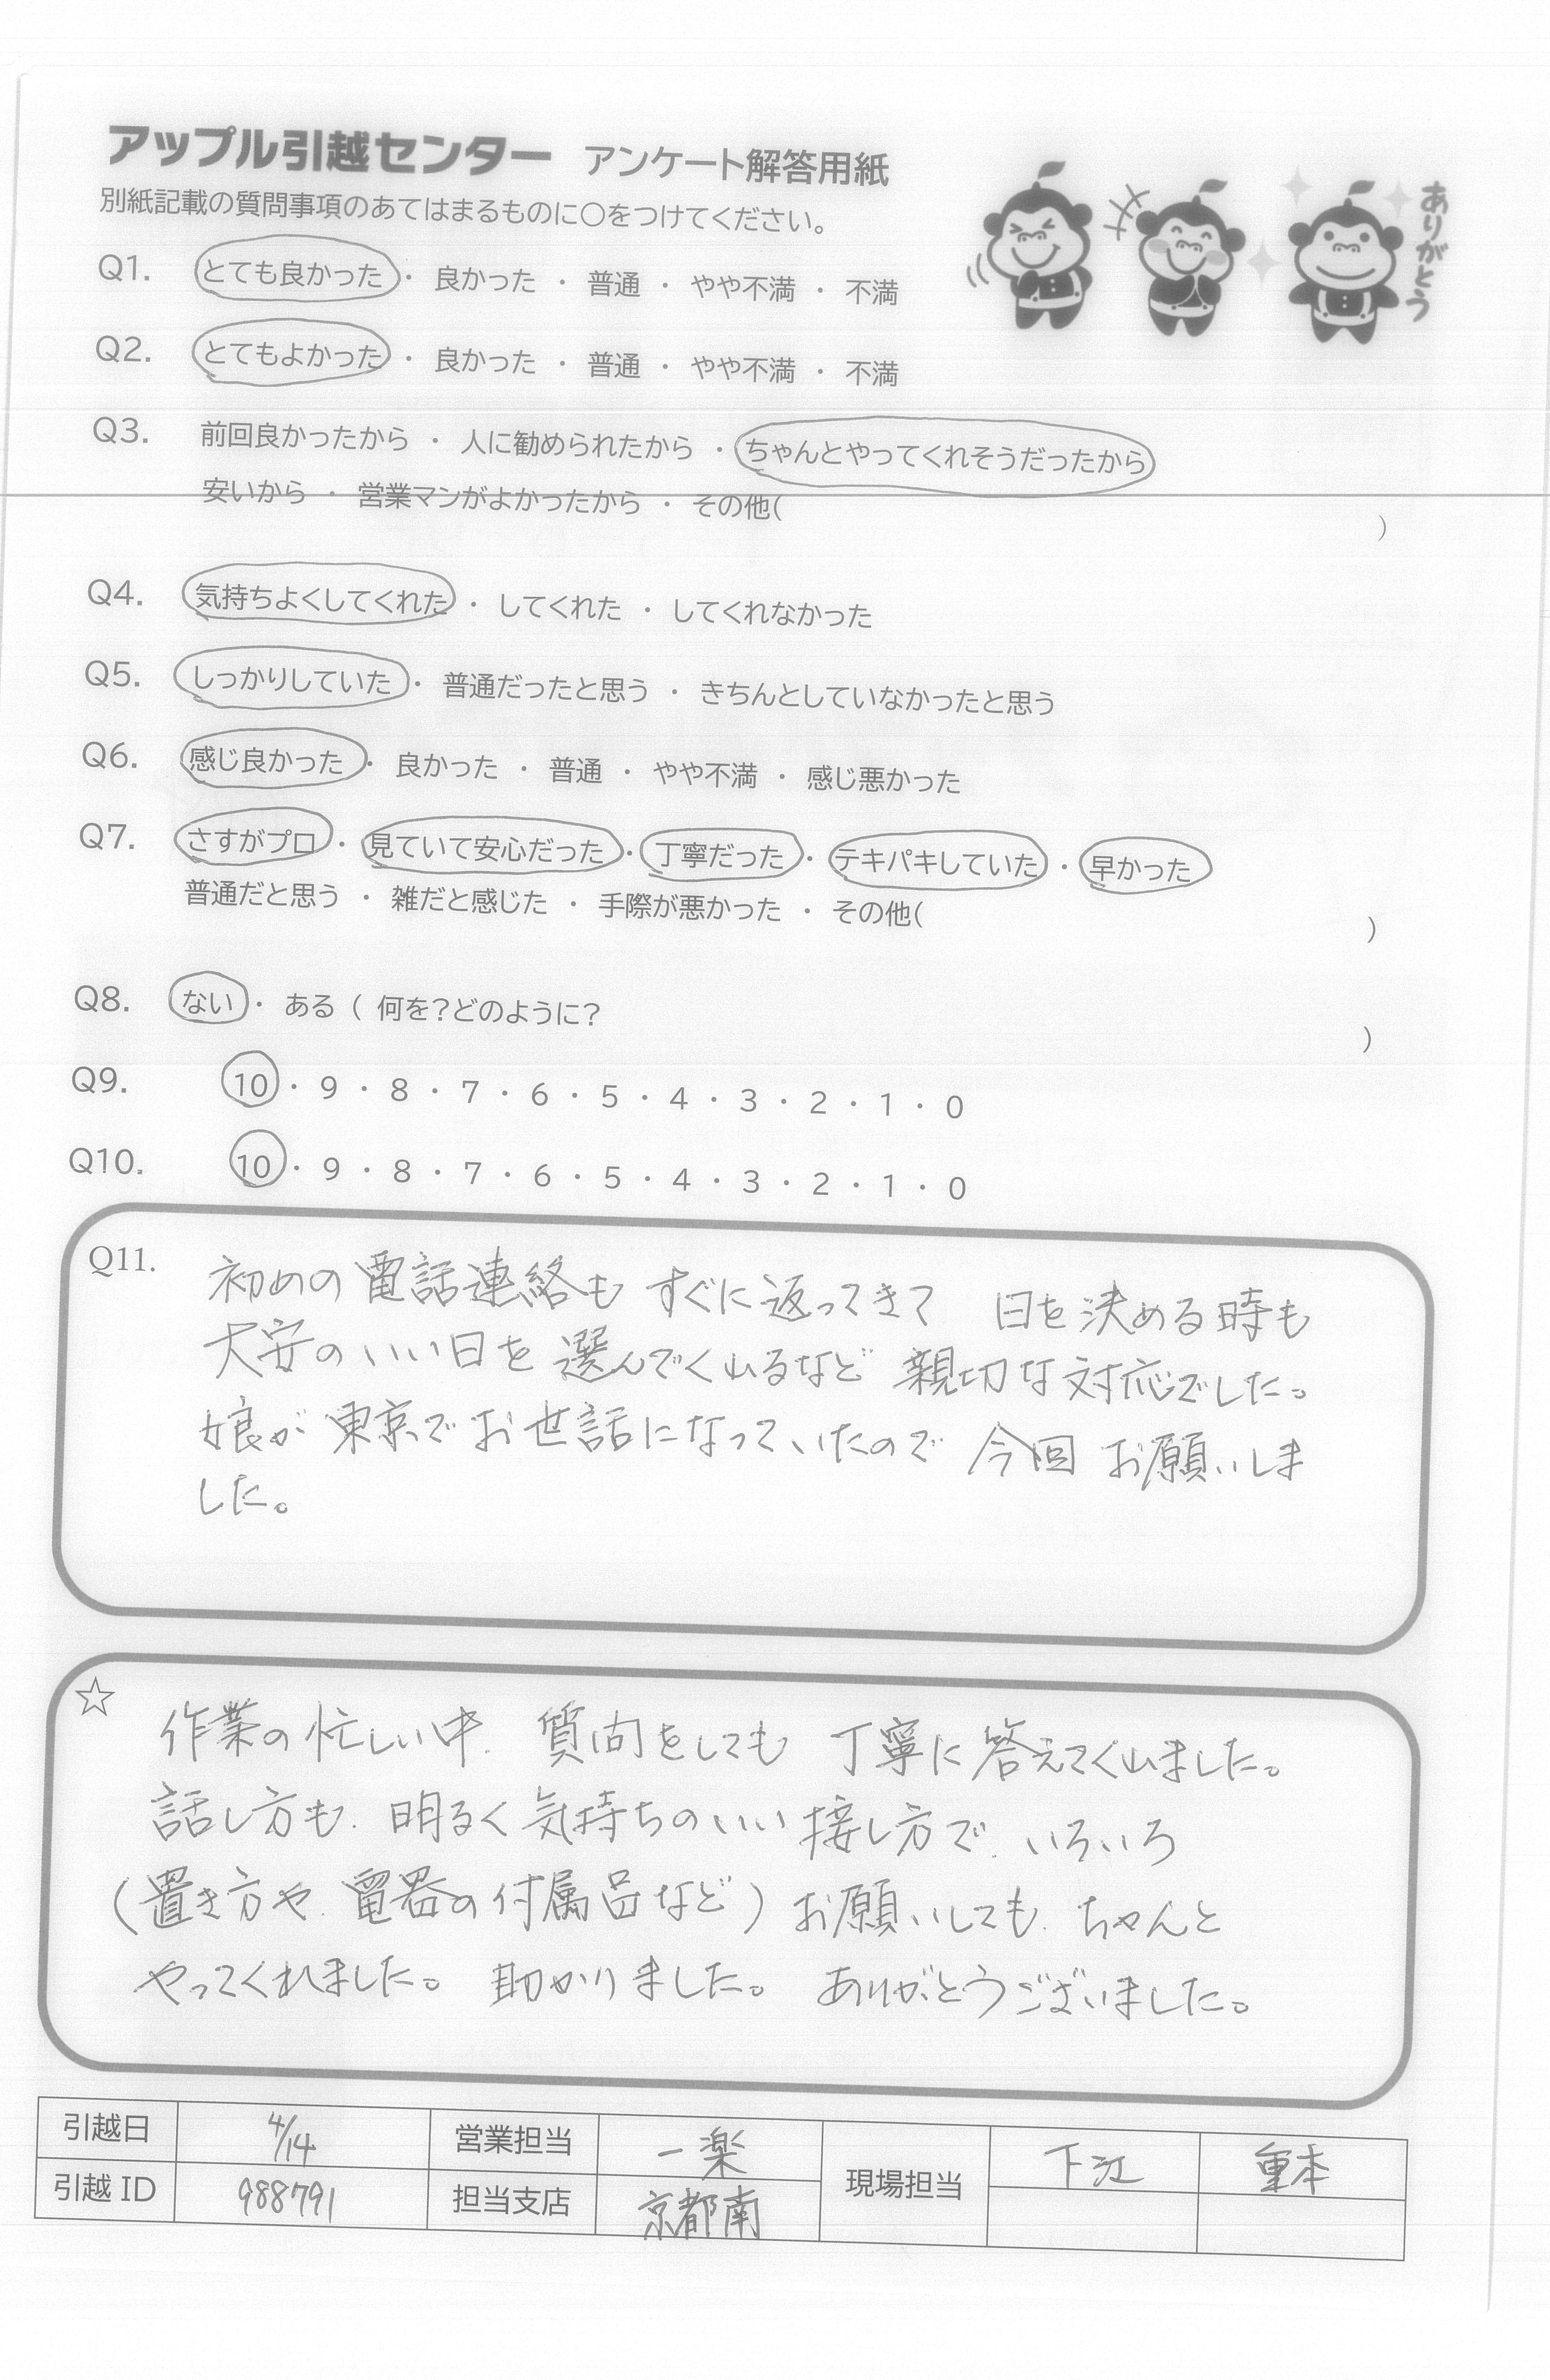 アップル引越センター アンケート解答用紙
ありがとう
別紙記載の質問事項のあてはまるものに○をつけてください。
Q1. とても良かった ・ 良かった ・ 普通 ・ やや不満 ・ 不満
Q2. とてもよかった ・ 良かった ・ 普通 ・ やや不満 ・ 不満
Q3. 前回良かったから ・ 人に勧められたから ・ ちゃんとやってくれそうだったから
安いから ・ 営業マンがよかったから ・ その他( )
Q4. 気持ちよくしてくれた ・ してくれた ・ してくれなかった
Q5. しっかりしていた ・ 普通だったと思う ・ きちんとしていなかったと思う
Q6. 感じ良かった ・ 良かった ・ 普通 ・ やや不満 ・ 感じ悪かった
Q7. さすがプロ ・ 見ていて安心だった ・ 丁寧だった ・ テキパキしていた ・ 早かった
普通だと思う ・ 雑だと感じた ・ 手際が悪かった ・ その他( )
Q8. ない ・ ある ( 何を?どのように? )
Q9. 10 ・ 9 ・ 8 ・ 7 ・ 6 ・ 5 ・ 4 ・ 3 ・ 2 ・ 1 ・ 0
Q10. 10 ・ 9 ・ 8 ・ 7 ・ 6 ・ 5 ・ 4 ・ 3 ・ 2 ・ 1 ・ 0
Q11. 初めの電話連絡も すぐに返ってきて 日を決める時も
大安のいい日を選んでくれるなど 親切な対応でした。
娘が東京でお世話になっていたので 今回 お願いしま
した。
☆ 作業の忙しい中、質問をしても 丁寧に答えてくれました。
話し方も、明るく気持ちのいい接し方で、いろいろ
(置き方や、電器の付属品など) お願いしても、ちゃんと
やってくれました。 助かりました。 ありがとうございました。
引越日 4/14 営業担当 一楽 現場担当 下江 重本
引越 ID 988791 担当支店 京都南